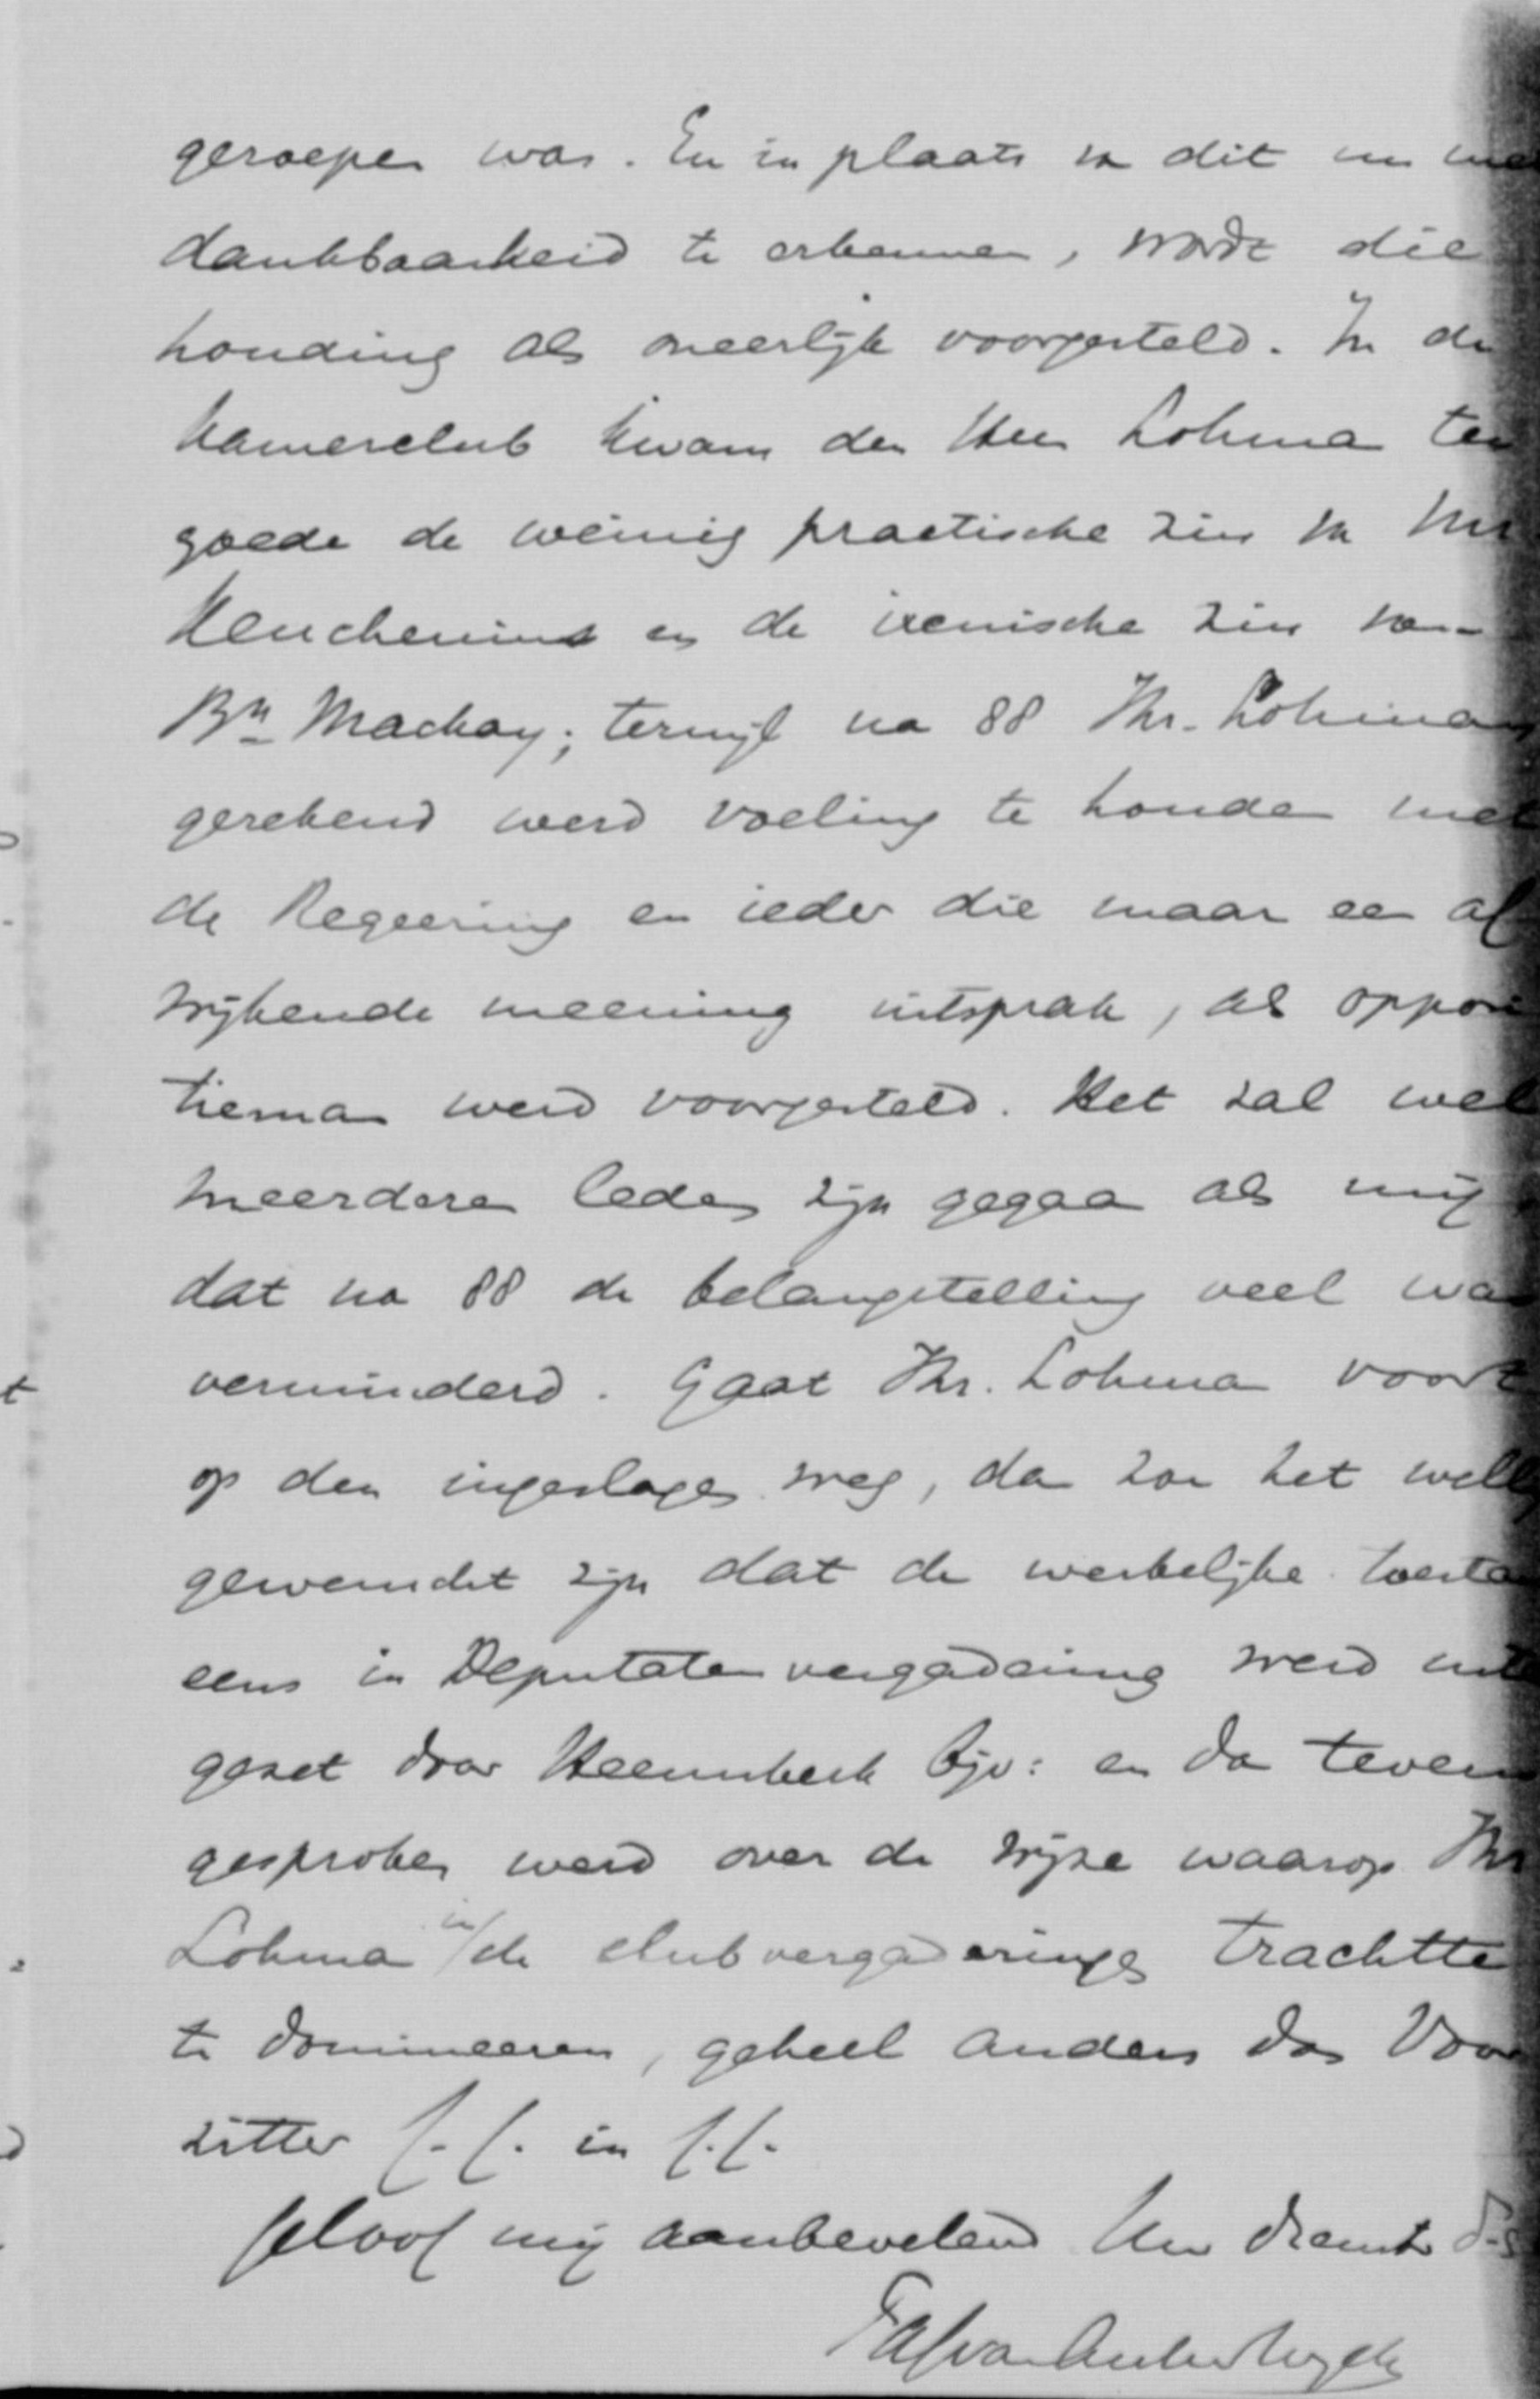 geroepen was. En in plaats van dit nu me
dankbaarheid te erkennen, wordt die
houding als oneerlijk voorgesteld. In de
Kamerclub kwam den Heer Lohman ten
goede de weinig practische zin van Mr
Keuchenius en de irenische zin van
Bn Mackay; terwijl na 88 Jhr. Lohman
gerekend werd voeling te houden met
de Regeering en ieder die maar een af
wijkende meening uitsprak, als opposi
tieman werd voorgesteld. Het zal wel
meerdere leden zijn gegaan als mij
dat na 88 de belangstelling veel was
verminderd. Gaat Jhr. Lohman voort
op den ingeslagen weg, dan zou het well
gewenscht zijn dat de werkelijke toesta
eens in Deputatenvergadering werd uit
gezet door Heemskerk bijv: en dan tevens
gesproken werd over de wijze waarop Jhr
Lohman in/de clubvergaderingen trachtte
te domineeren, geheel anders dan Voor
zitter f.f. in f.f.
Geloof mij aanbevelend Uw dienstv d.s